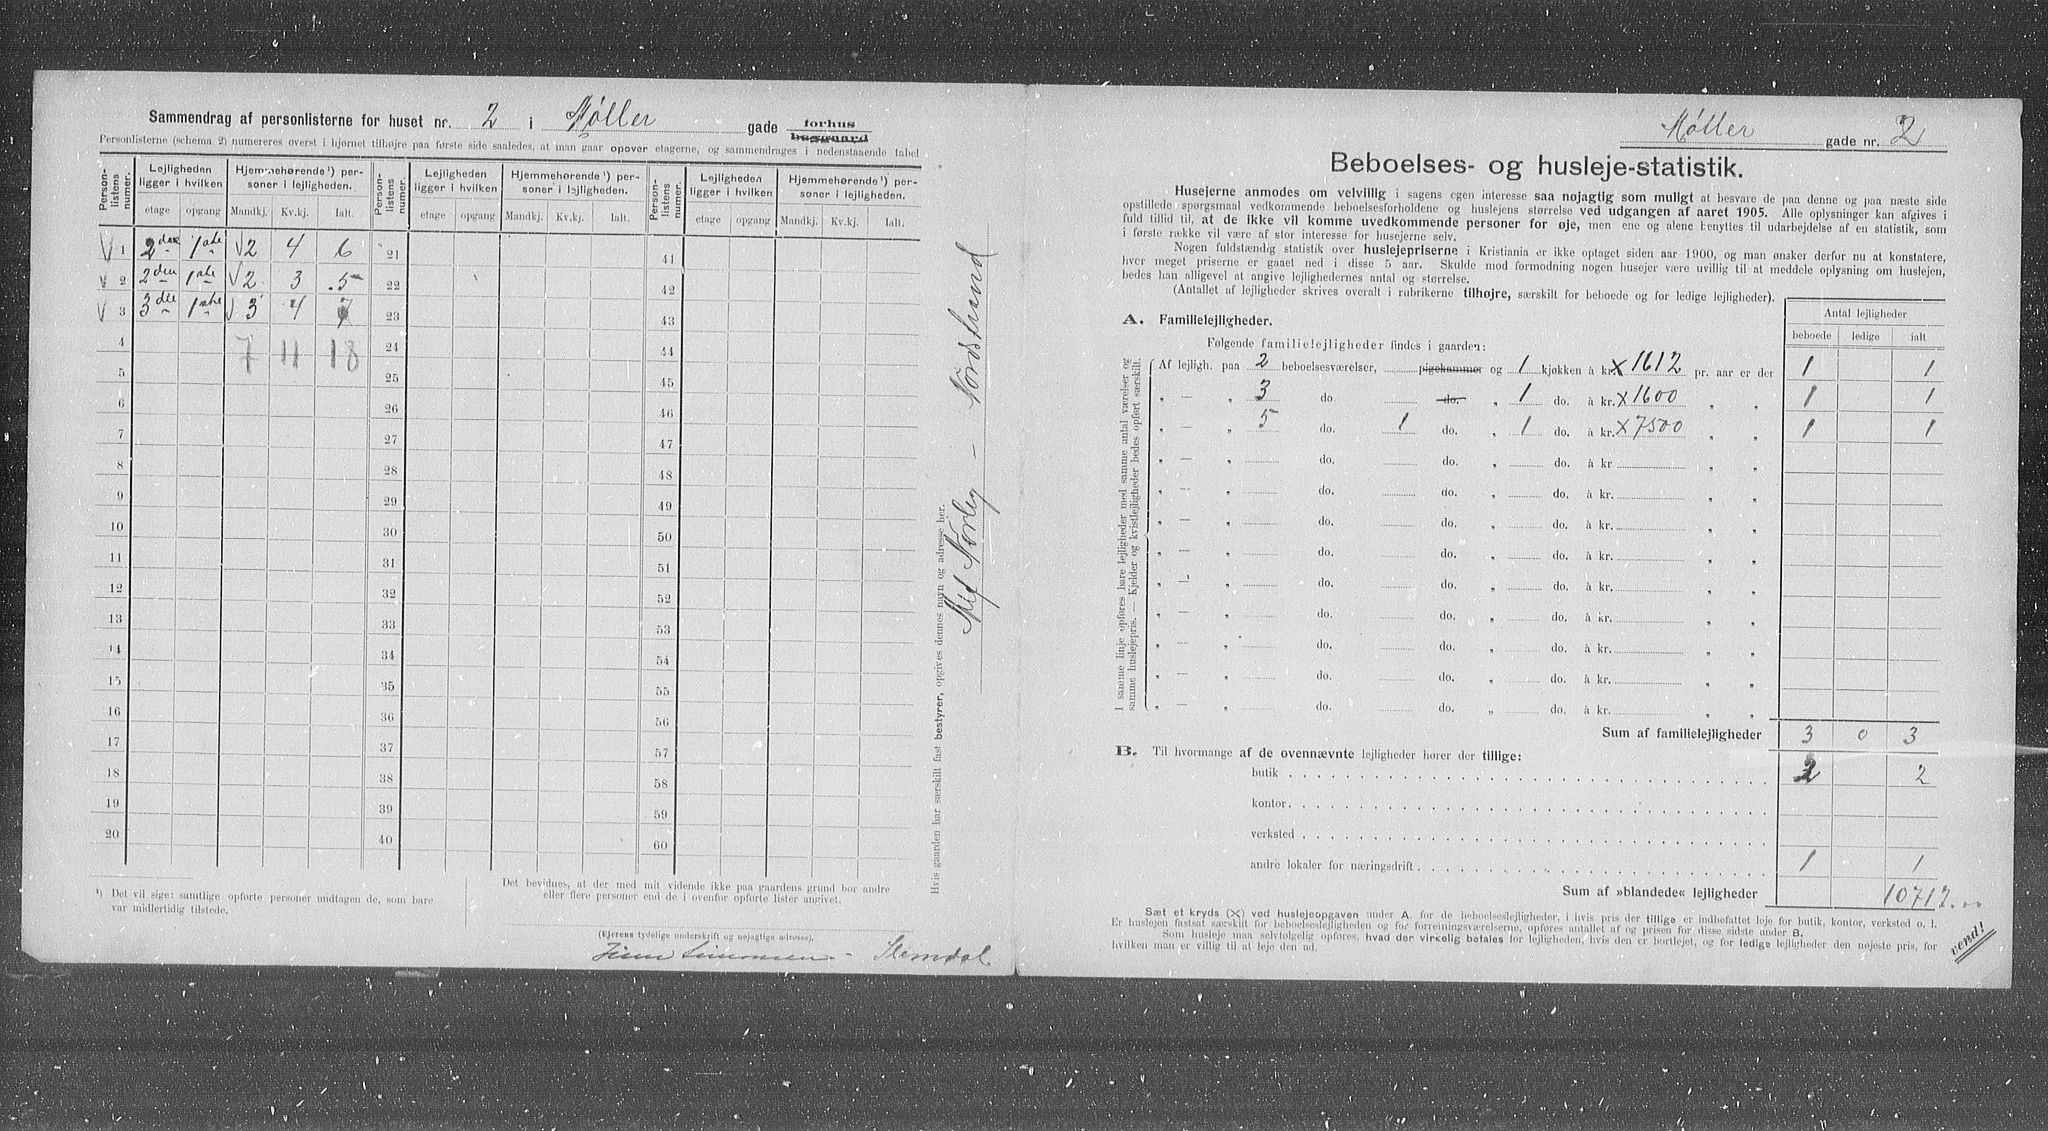 Sammendrag af personlisterne for huset nr. 2 i Møller gade forhus
baggaard
Personlisterne (schema 2) numereres øverst i hjørnet tilhøjre paa første side saaledes, at man gaar opover etagerne, og sammendrages i nedenstaaende tabel
Person-listens numer. Lejligheden ligger i hvilken Hjemmehørende¹) personer i lejligheden. Person-listens numer. Lejligheden ligger i hvilken Hjemmehørende¹) personer i lejligheden. Person-listens numer. Lejligheden ligger i hvilken Hjemmehørende¹) personer i lejligheden.
etage opgang Mandkj. Kv.kj. Ialt. etage opgang Mandkj. Kv.kj. Ialt. etage opgang Mandkj. Kv.kj. Ialt.
V 1 2den 1ste √2 4 6 21 41
V 2 2den 1ste √2 3 5 22 42
V 3 3die 1ste √3 4 7 23 43
4 7 11 18 24 44
5 25 45
6 26 46
7 27 47
8 28 48
9 29 49
10 30 50
11 31 51
12 32 52
13 33 53
14 34 54
15 35 55
16 36 56
17 37 57
18 38 58
19 39 59
20 40 60
¹) Det vil sige: samtlige opførte personer undtagen de, som bare
var midlertidig tilstede.
Det bevidnes, at der med mit vidende ikke paa gaardens grund bor andre
eller flere personer end de i ovenfor opførte lister angivet.
(Ejerens tydelige underskrift og nøjagtige adresse).
Simonsen - Slemdal
Hvis gaarden har særskilt fast bestyrer, opgives dennes navn og adresse her.
Nordstrand
Møller gade nr. 2
Beboelses- og husleje-statistik.
Husejerne anmodes om velvillig i sagens egen interesse saa nøjagtig som muligt at besvare de paa denne og paa næste side
opstillede spørgsmaal vedkommende beboelsesforholdene og huslejens størrelse ved udgangen af aaret 1905. Alle oplysninger kan afgives i
fuld tillid til, at de ikke vil komme uvedkommende personer for øje, men ene og alene benyttes til udarbejdelse af en statistik, som
i første række vil være af stor interesse for husejerne selv.
Nogen fuldstændig statistik over huslejepriserne i Kristiania er ikke optaget siden aar 1900, og man ønsker derfor nu at konstatere,
hvor meget priserne er gaaet ned i disse 5 aar. Skulde mod formodning nogen husejer være uvillig til at meddele oplysning om huslejen,
bedes han alligevel at angive lejlighedernes antal og størrelse.
(Antallet af lejligheder skrives overalt i rubrikerne tilhøjre, særskilt for beboede og for ledige lejligheder).
Antal lejligheder
beboede ledige ialt
A. Familielejligheder.
Følgende familielejligheder findes i gaarden:
I samme linje opføres bare lejligheder med samme antal værelser og
samme huslejepris. — Kjelder og kvistlejligheder bedes opført særskilt.
Af lejligh. paa 2 beboelsesværelser, pigekammer og 1 kjøkken à kr. x 1612 pr. aar er der 1 1
„ — „ 3 do. do. „ 1 do. à kr. x 1600 „ „ 1 1
„ — „ 5 do. 1 do. „ 1 do. à kr. x 7500 „ „ 1 1
„ — „ do. do. „ do. à kr. „ „
„ — „ do. do. „ do. à kr. „ „
„ — „ do. do. „ do. à kr. „ „
„ — „ do. do. „ do. à kr. „ „
„ — „ do. do. „ do. à kr. „ „
„ — „ do. do. „ do. à kr. „ „
„ — „ do. do. „ do. à kr. „ „
„ — „ do. do. „ do. à kr. „ „
„ — „ do. do. „ do. à kr. „ „
Sum af familielejligheder 3 0 3
B. Til hvormange af de ovennævnte lejligheder hører der tillige:
butik 2 2
kontor
verksted
andre lokaler for næringsdrift 1 1
Sum af »blandede« lejligheder 10712.
Sæt et kryds (X) ved huslejeopgaven under A. for de beboelseslejligheder, i hvis pris der tillige er indbefattet leje for butik, kontor, verksted o. l.
Er huslejen fastsat særskilt for beboelseslejligheden og for forretningsværelserne, opføres antallet af og prisen for disse sidste under B.
Som husleje maa selvfølgelig opføres, hvad der virkelig betales for lejligheden, hvis den er bortlejet, og for ledige lejligheder den nøjeste pris, for
hvilken man er villig til at leje den ud.
vend!